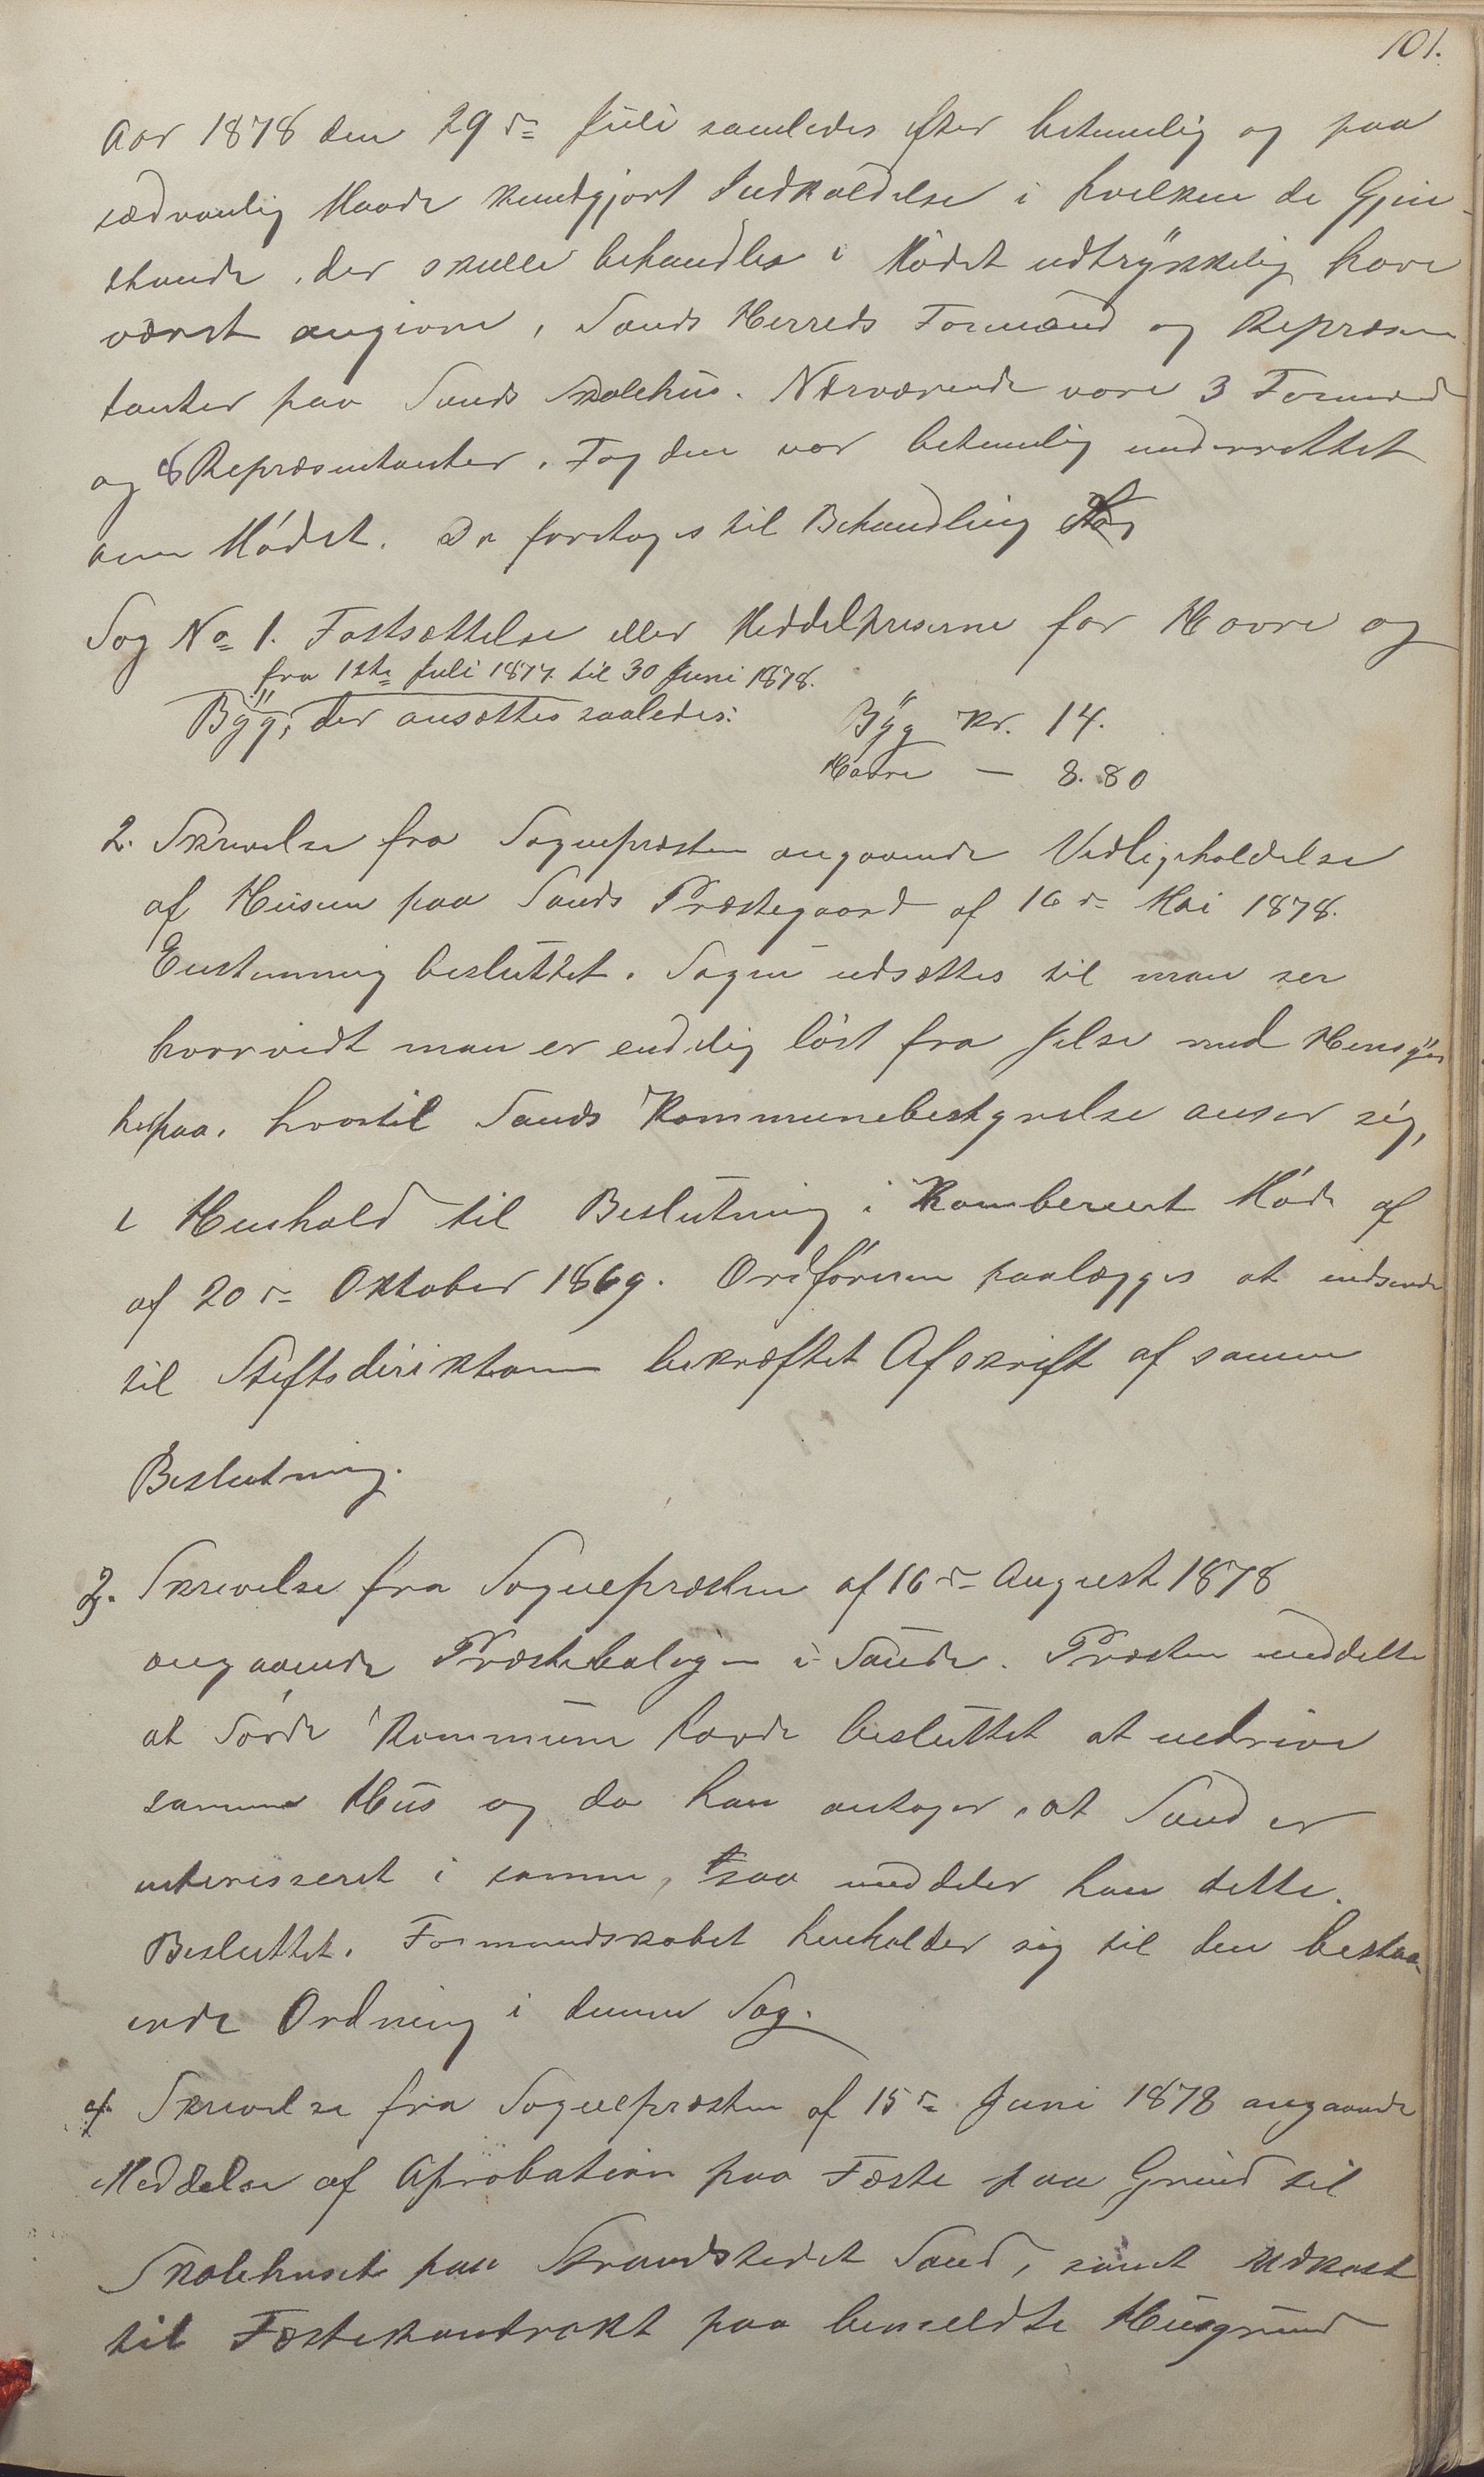 101.
Aar 1878 den 29de Juli samledes efter betimelig og paa
sædvanlig Maade kundgjort Indkaldelse i hvilken de Gjen-
stande, der skulle behandles i Mødet udtrykkelig have
været angivne, Sands Herreds Formænd og Repræsen
tanter paa Sands Skolehus. Nærværende vare 3 Formænd
og 8 Repræsentanter. Fogden var betimelig underrettet
om Mødet. Da foretoges til Behandling
Sag No 1. Fastsættelse eller Middelpriserne for Havre og
fra 1ste Juli 1877 til 30 Juni 1878.
Byg, der ansættes saaledes: Byg Kr. 14.
Havre — 8.80
2. Skrivelse fra Sognepræsten angaaende Vedligeholdelse
af Husene paa Sands Præstegaard af 16de Mai 1878.
Enstemmig besluttet. Sagen udsættes til man ser
hvorvidt man er endelig løst fra Jelse med Hensyn
herpaa, hvortil Sands Kommunebestyrelse anser sig,
i Henhold til Beslutning i Kombineret Møde af
af 20de Oktober 1869. Ordføreren paalægges at indsende
til Stiftsdirektionen bekræftet Afskrift af samme
Beslutning.
3. Skrivelse fra Sognepræsten af 16de August 1878
angaaende Præsteboligen i Saude. Præsten meddelte
at Søvde Kommune havde besluttet at nedrive
samme Hus og da han antager, at Sand er
interisseret i samme, saa meddeler han dette.
Besluttet. Formandskabet henholder sig til den bestaa-
ende Ordning i denne Sag.
4. Skrivelse fra Sognepræsten af 15de Juni 1878 angaaende
Meddelse af Aprobation paa Fæste paa Grund til
Skolehuset paa Strandstedet Sand, samt Udkast
til Fæstekontrakt paa bemeldte Husgrund